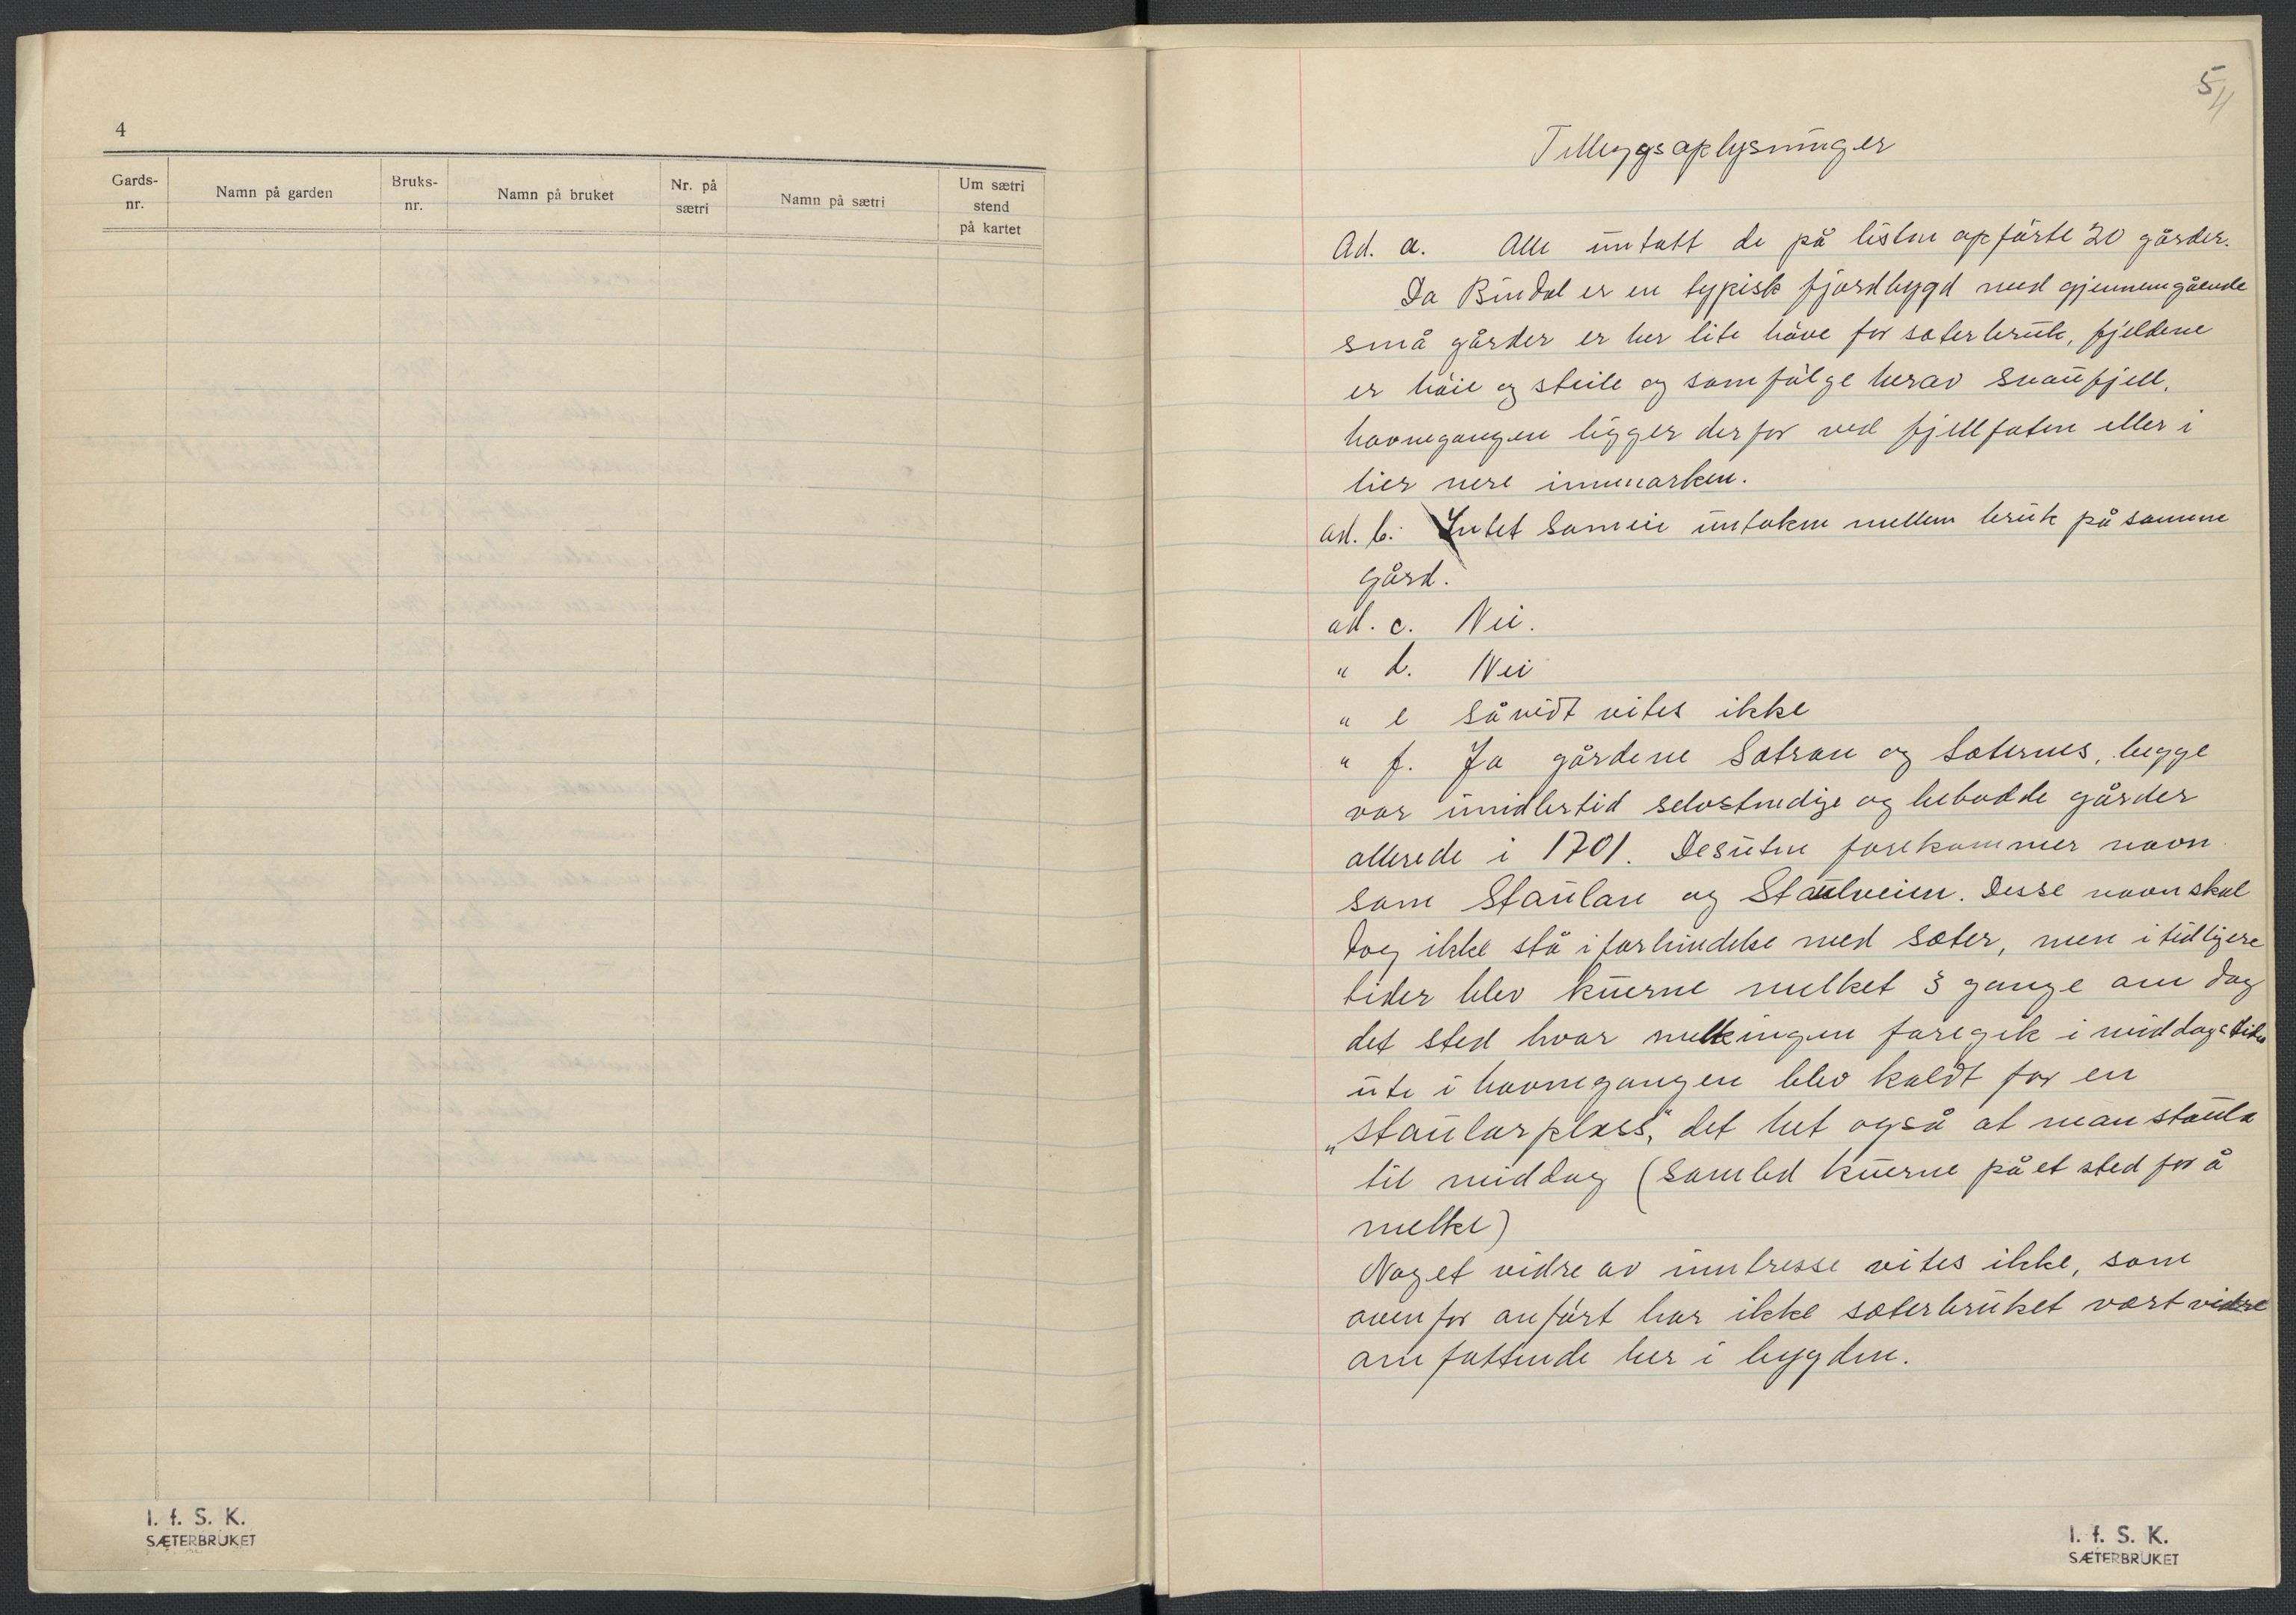 4
Gards-
nr.
Namn på garden
Bruks-
nr.
Namn på bruket
Nr. på
sætri
Namn på sætri
Um sætri
stend
på kartet
I. f. S. K.
SÆTERBRUKET
5/4
Tilleggsoplysninger
Ad. a. Alle untatt de på listen opførte 20 gårder.
Da Bindal er en typisk fjordbygd med gjennemgående
små gårder er her lite høve for sæterbruk, fjeldene
er høie og steile og som følge herav snaufjell.
havnegangen ligger derfor ved fjellfoten eller i
lier nere innmarken.
ad. b. Intet sameie untaken mellem bruk på samme
gård.
ad. c. Nei.
" d. Nei
" e såvidt vites ikke
" f. Ja gårdene Sætran og Sæternes, begge
var imidlertid selvstendige og bebodde gårder
allerede i 1701. Desuten forekommer navn
som Staulan og Staulveien. Disse navn skal
dog ikke stå i forbindelse med sæter, men i tidligere
tider blev kuerne melket 3 gange om dag
det sted hvor melkingen foregik i middagstiden
ute i havnegangen blev kaldt for en
"staularplass", det het også at man staula
til middag (samled kuerne på et sted for å
melke)
Noget vidre av inntresse vites ikke, som
ovenfor anført har ikke sæterbruket vært vidre
omfattende her i bygden.
I. f. S. K.
SÆTERBRUKET